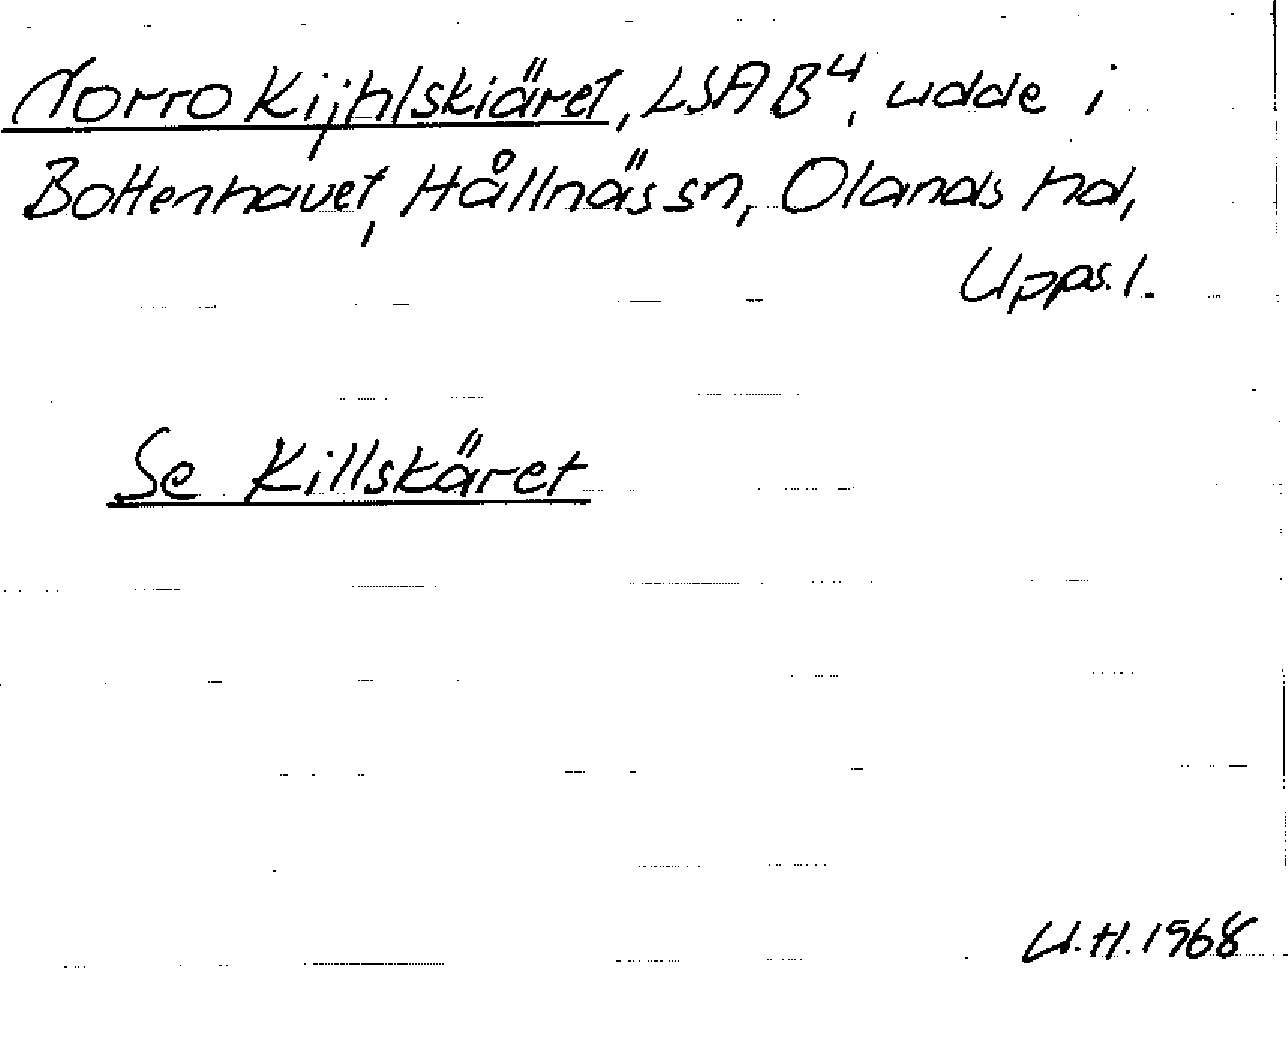 Norro Kijhlskiäret, LSA B4, udde i
Bottenhavet, Hållnäs sn, Olands hd,
Upps. l.
Se Killskäret
U.H. 1968